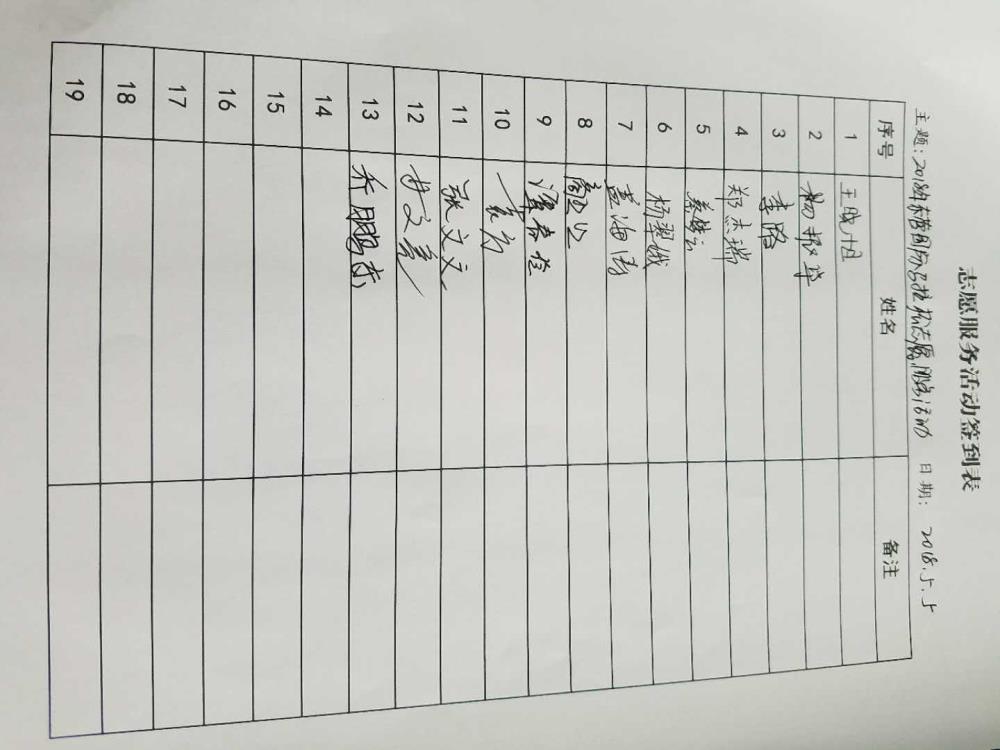 志愿服务活动签到表
主题:2018年东营国际马拉松志愿服务活动 日期: 2018.5.5
序号 姓名 备注
1 王晓丹
2 杨振华
3 李路
4 郑杰瑞
5
6 杨翠娥
7 孟海涛
8
9
10
11 张文文
12
13 乔鹏李
14
15
16
17
18
19